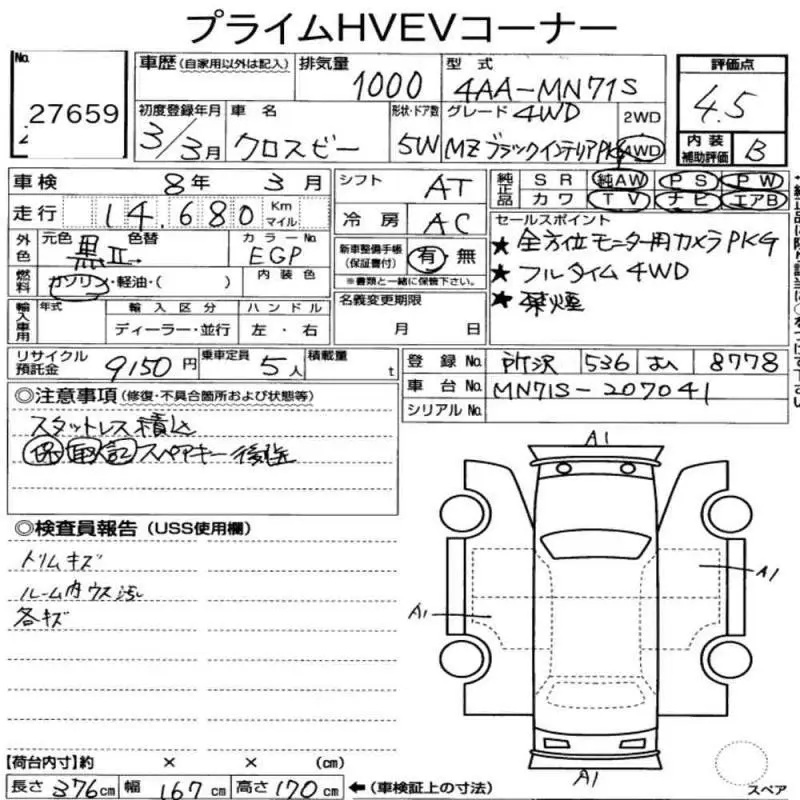 プライムHVEVコーナー
No.
27659
車歴(自家用以外は記入)
排気量
1000
型式
4AA-MN71S
評価点
4.5
初度登録年月
3/3月
車名
クロスビー
形状・ドア数
5W
グレード
4WD
MZ ブラックインテリアPKG
2WD
4WD
内装
補助評価
B
車検
8年 3月
シフト
AT
純正品
SR 純AW PS PW
カワ TV ナビ エアB
走行
14,680
Km
マイル
冷房
AC
外色
元色
黒II
色替
カラーNo.
EGP
新車整備手帳
(保証書付)
有・無
※書類と一緒に保管下さい。
セールスポイント
★全方位モニター用カメラPKG
★フルタイム4WD
★禁煙
燃料
ガソリン・軽油・( )
内装色
名義変更期限
月 日
輸入車用
年式
輸入区分
ディーラー・並行
ハンドル
左・右
リサイクル
預託金
9150円
乗車定員
5人
積載量
t
登録No.
所沢 536 8778
車台No.
MN71S-207041
シリアルNo.
◎注意事項(修復・不具合箇所および状態等)
スタットレス積込
保 取 記 スペアキー後送
◎検査員報告(USS使用欄)
トリムキズ
ルーム内ウス汚
各キズ
A1
A1
A1
A1
スペア
【荷台内寸】約 × × (cm)
長さ376cm 幅167cm 高さ170cm ←(車検証上の寸法)